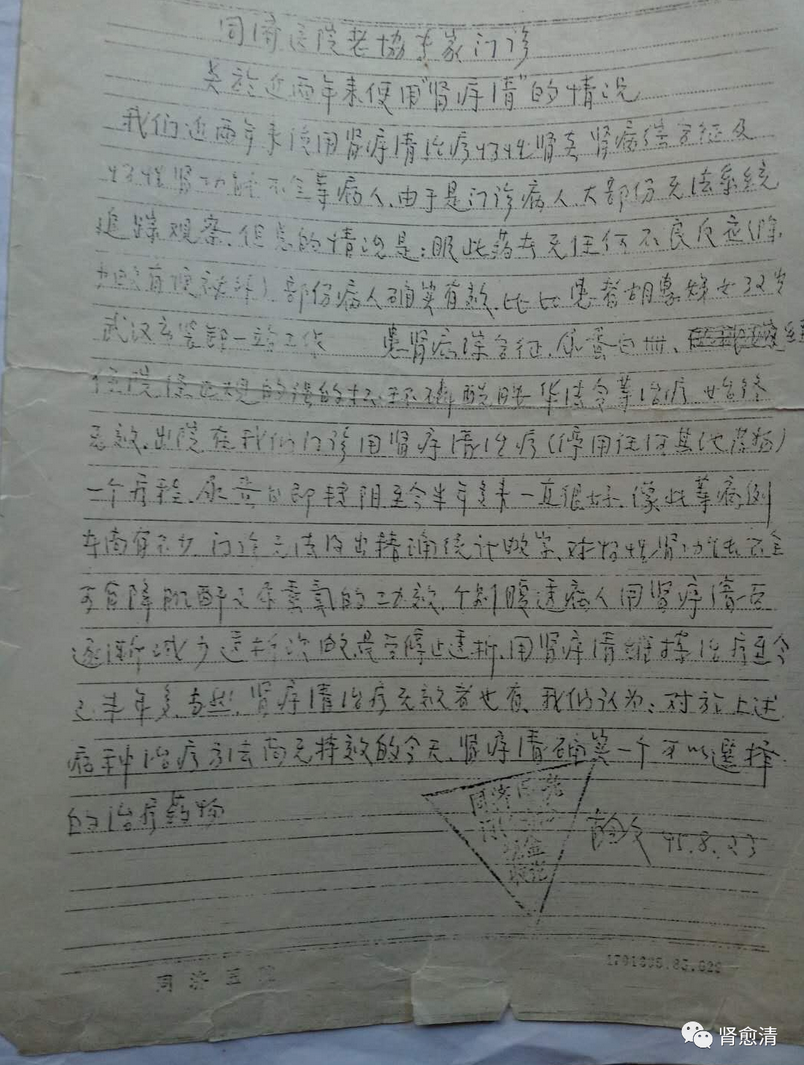 同济医院老协专家门诊
关於近两年来使用“肾痹清”的情况
我们近两年来使用肾痹清治疗慢性肾炎肾病综合征及
慢性肾功能不全等病人、由于是门诊病人、大部份无法系统
追踪观察、但总的情况是：服此药者无任何不良反应（除
）部份病人确实有效、比如患者胡 女32岁
武汉市装卸一站工作 患肾病综合征、尿蛋白卌、
住院 华法令等治疗 始终
无效、出院在我们门诊用肾痹清治疗（停用任何其他药物）
一个疗程、尿蛋白即转阴至今半年多来一直很好、像此等病例
者尚有不少、门诊无法得出精确统计数字、对慢性肾功能不全
可有降肌酐及尿素氮的功效、个别腹透病人用肾痹清后
逐渐减少透析次数、最至停止透析、用肾痹清维持治疗至今
已半年多、当然、肾痹清治疗无效者也有、我们认为：对於上述
病种治疗方法尚无特效的今天、肾痹清确实一个可以选择
的治疗药物
同济医院
95.8.23
同济医院
1791005.85.020
肾愈清